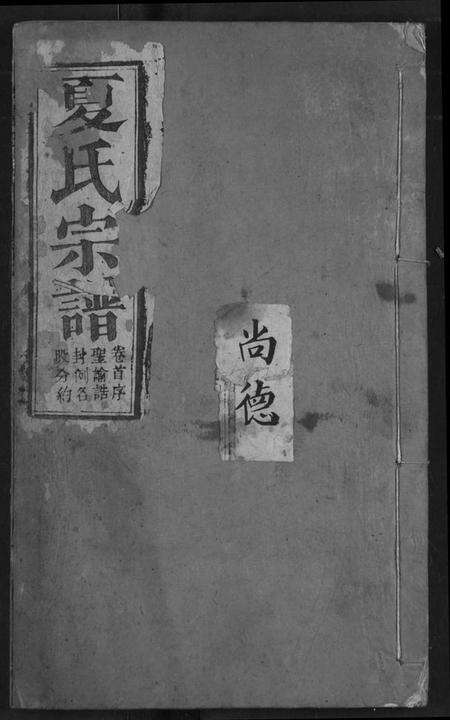 夏氏宗譜
卷首序
聖諭誥
封例名
股分約
尚德